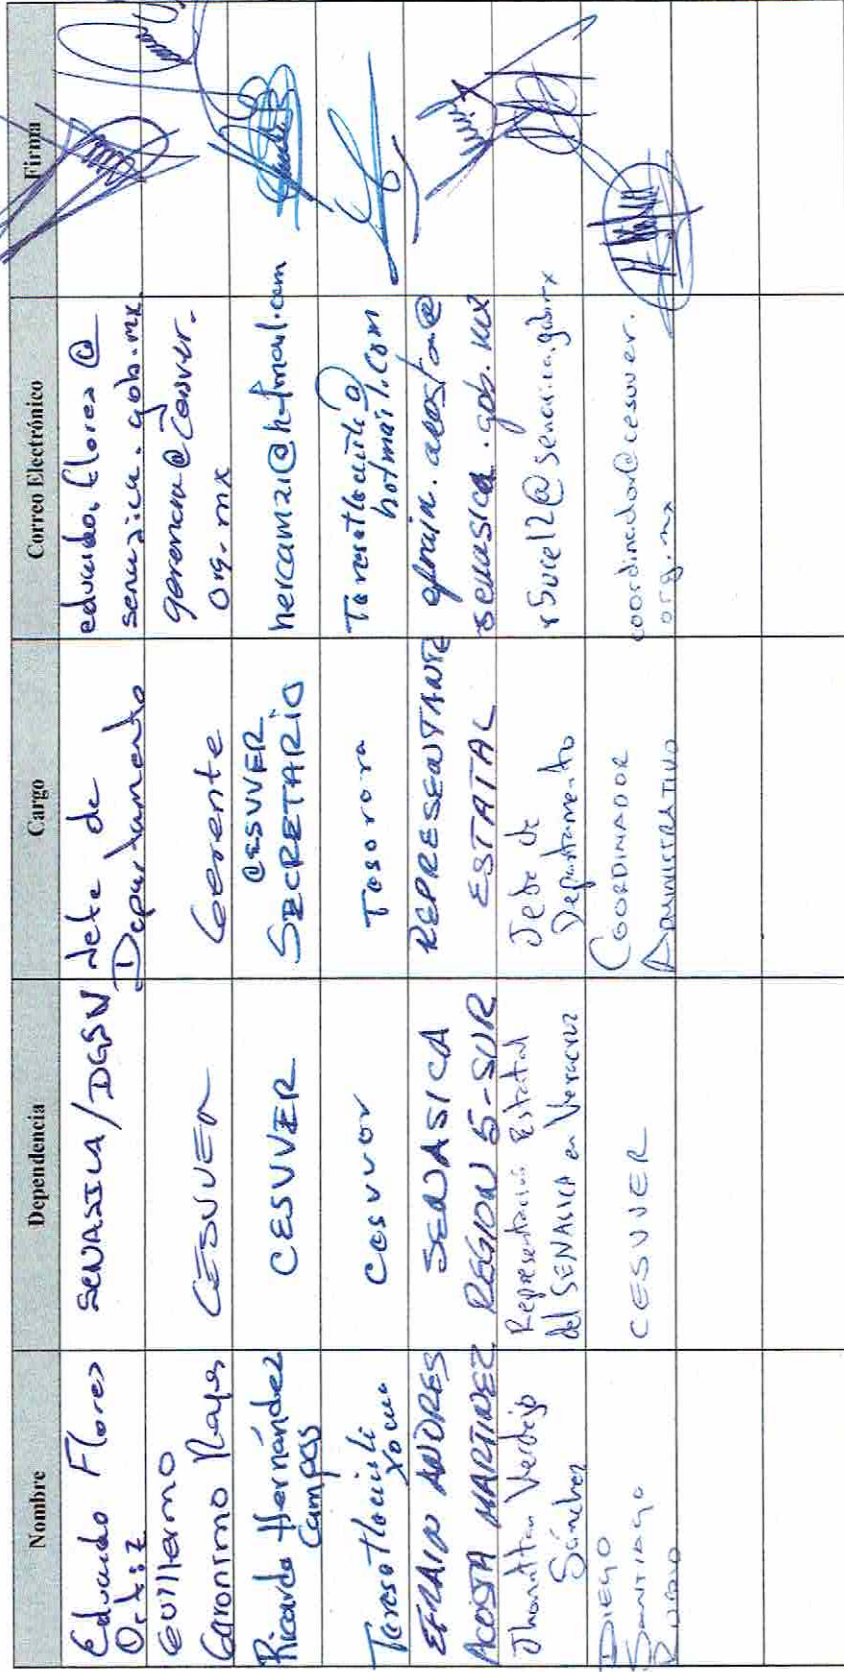 Nombre
Dependencia
Cargo
Correo Electrónico
Firma
Eduardo Flores
Ortiz
SENASICA/DGSV
Jefe de
Departamento
eduardo.flores@
senasica.gob.mx
Guillermo
Geronimo Reyes
CESVVER
Gerente
gerencia@cesvver.
org.mx
Ricardo Hernández
Campos
CESVVER
CESVVER
SECRETARIO
hercamzi@hotmail.com
Xocua
Cesvver
Tesorera
hotmail.com
EFRAIN ANDRES
ACOSTA MARTINEZ
SENASICA
REGION 5-SUR
REPRESENTANTE
ESTATAL
efrain.acosta@
senasica.gob.mx
Jhonattan Verdejo
Sánchez
Representación Estatal
del SENASICA en Veracruz
Jefe de
Departamento
DIEGO
SANTIAGO
RUBIO
CESVVER
COORDINADOR
ADMINISTRATIVO
coordinador@cesvver.
org.mx